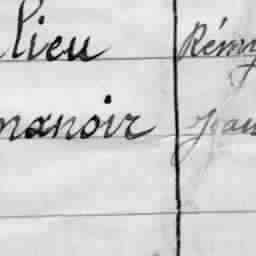 lieu Rémy
manoir Jean